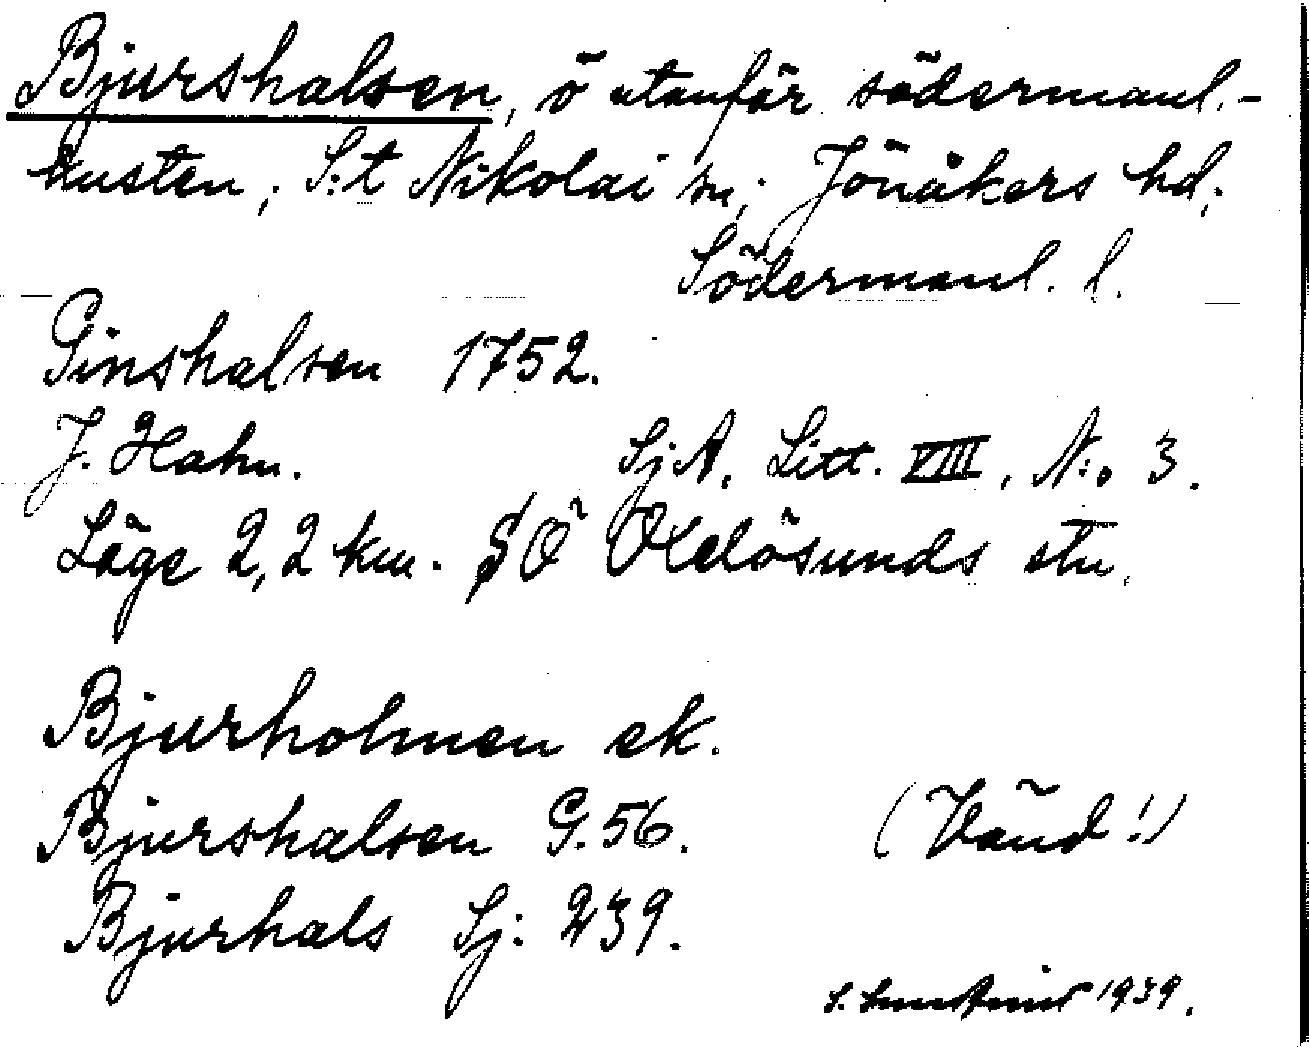 Bjurshalsen, ö utanför södermanl.-
kusten; S:t Nikolai sn; Jönåkers hd;
Södermanl. l.
Ginshalsen 1752.
J. Hahn. SjA, Litt. VIII, N:o 3.
Läge 2,2 km. SÖ Oxelösunds stn.
Bjurholmen ek.
Bjurshalsen G. 56. (Vänd!)
Bjurhals Sj: 239.
S. 1939.